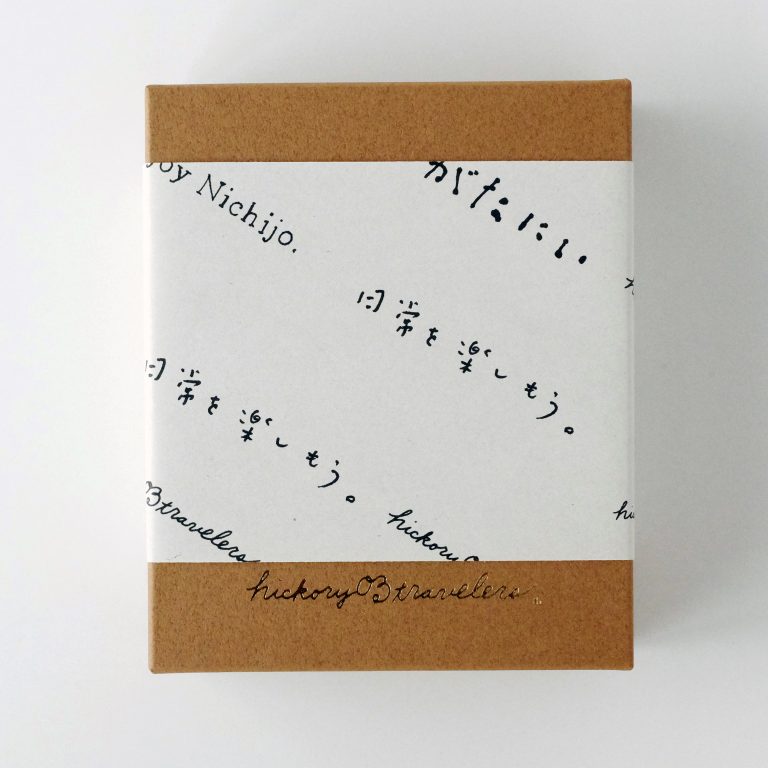 joy Nichijo.
がたにい.
日常を楽しもう。
日常を楽しもう。
hickory03travelers
hickory0
hi
hickory03travelers.